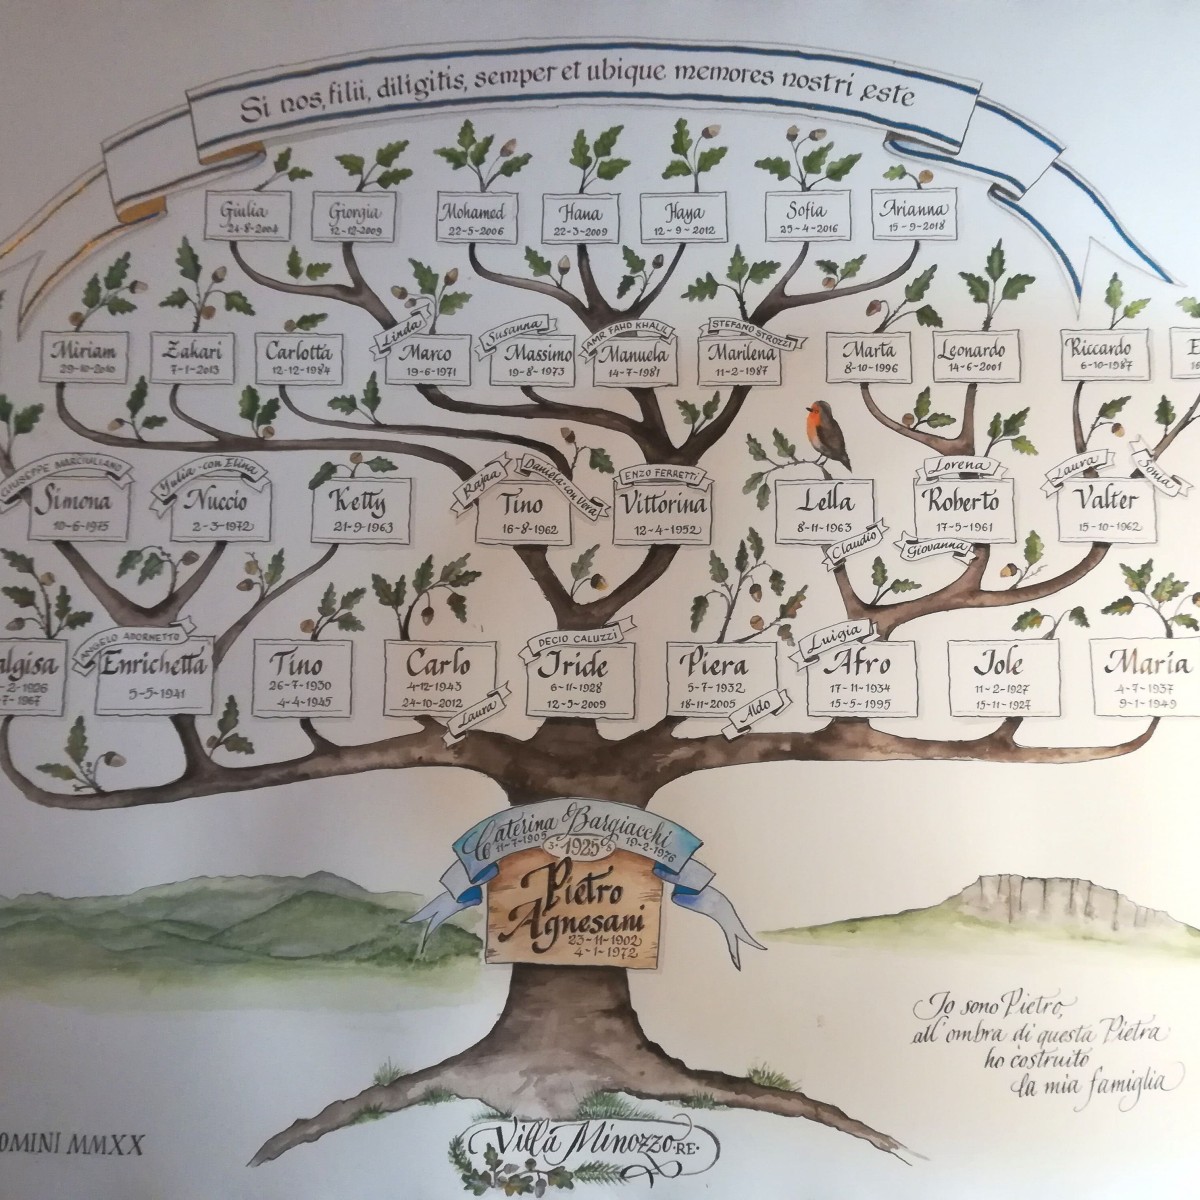 Si nos, filii, diligitis, semper et ubique memores nostri este
Giulia
24-8-2004
Giorgia
12-12-2009
Mohamed
22-5-2006
Hana
22-3-2009
Haya
12-9-2012
Sofia
25-4-2016
Arianna
15-9-2018
Miriam
29-10-2010
Zakari
7-1-2013
Carlotta
12-12-1984
Linda
Marco
19-6-1971
Susanna
Massimo
19-8-1973
AMR FAHD KHALIL
Manuela
14-7-1981
STEFANO STROZZI
Marilena
11-2-1987
Marta
8-10-1996
Leonardo
14-6-2001
Riccardo
6-10-1987
E
16
GIUSEPPE MARCIULIANO
Simona
10-6-1975
Yulia-con Elina
Nuccio
2-3-1972
Ketty
21-9-1963
Rajaa
Daniela-con Vera
Tino
16-8-1962
ENZO FERRETTI
Vittorina
12-4-1952
Lella
8-11-1963
Claudio
Lorena
Roberto
17-5-1961
Giovanna
Laura
Sonia
Valter
15-10-1962
algisa
-2-1926
-7-1967
ANGELO ADORNETTO
Enrichetta
5-5-1941
Tino
26-7-1930
4-4-1945
Carlo
4-12-1943
24-10-2012
Laura
DECIO CALUZZI
Iride
6-11-1928
12-3-2009
Piera
5-7-1932
18-11-2005
Aldo
Luigia
Afro
17-11-1934
15-5-1995
Jole
11-2-1927
15-11-1927
Maria
4-7-1937
9-1-1949
Caterina Bargiacchi
11-7-1905 1925 19-2-1976
Pietro
Agnesani
23-11-1902
4-1-1972
Io sono Pietro,
all'ombra di questa Pietra
ho costruito
la mia famiglia
OMINI MMXX
Villa Minozzo RE